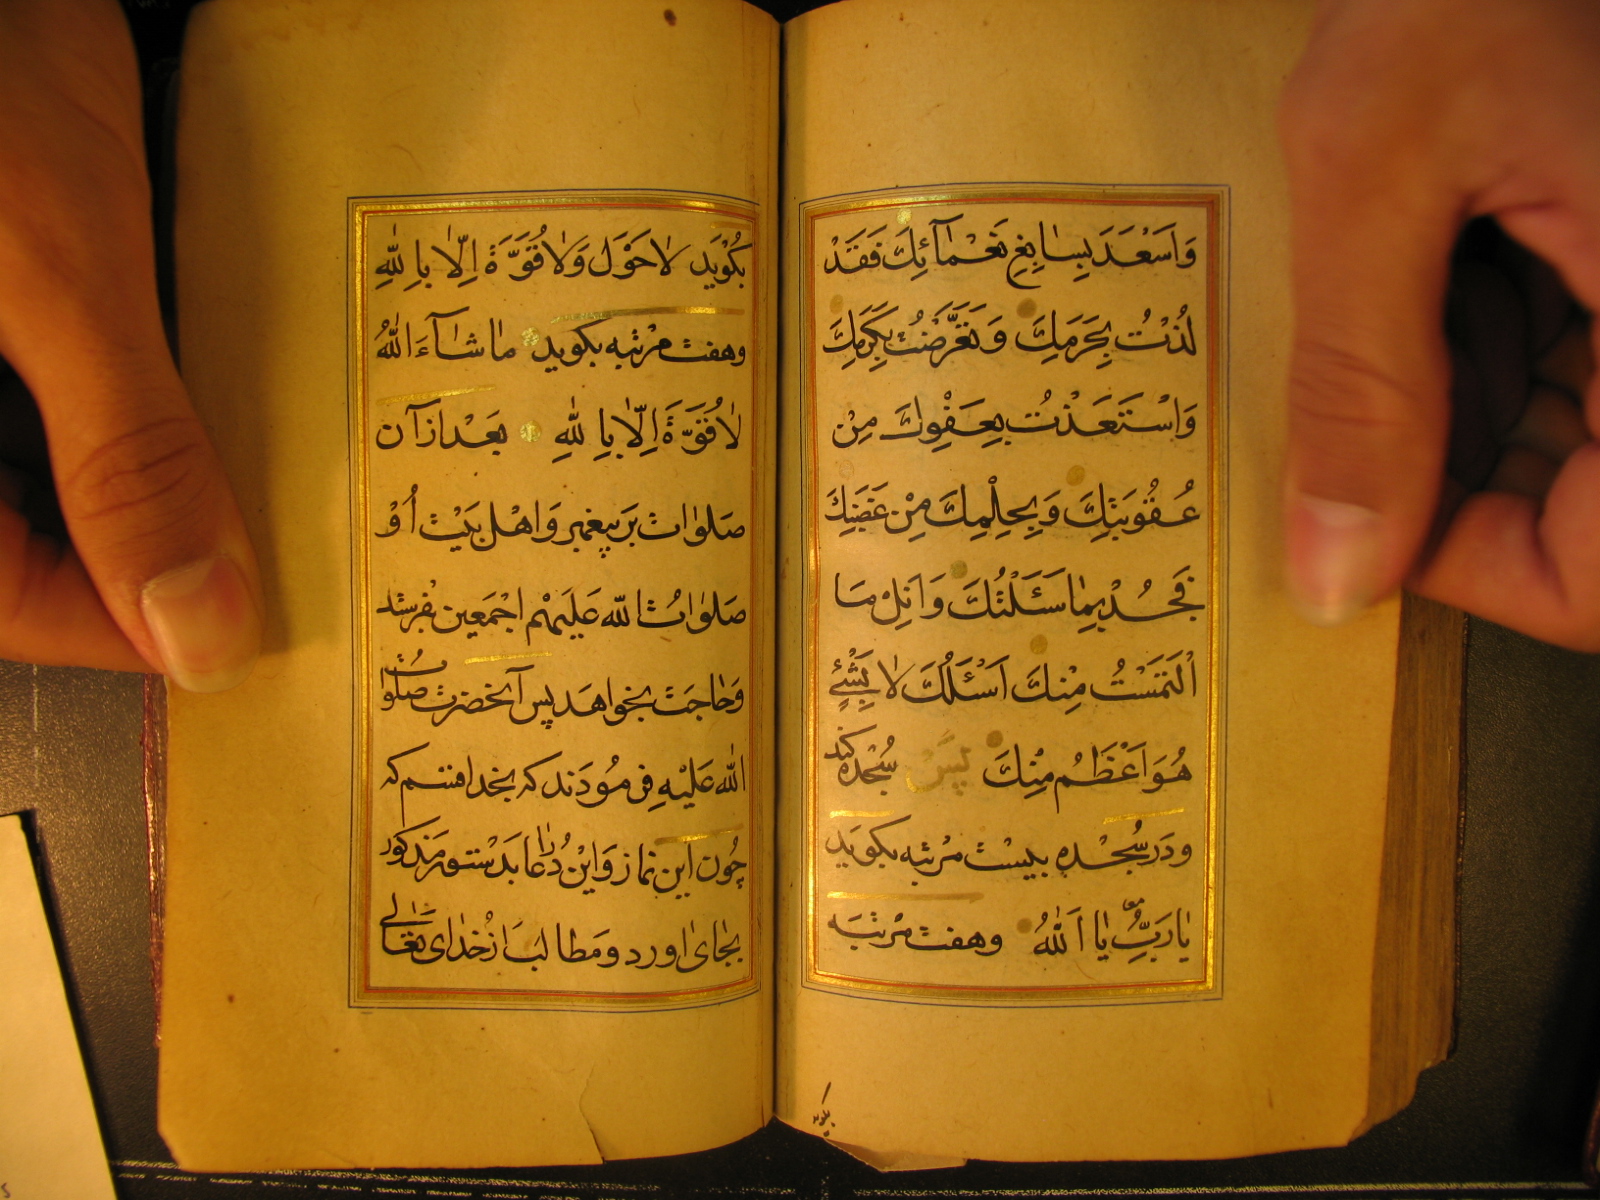 وَاَسْعَدَ بِسٰابِغِ نَعْمٰآئِكَ فَقَدْ
لُذْتُ بِحَرَمِكَ وَتَعَرَّضْتُ بِكَرَمِكَ
وَاسْتَعَذْتُ بِعَفْوِكَ مِنْ
عُقُوبَتِكَ وَبِحِلْمِكَ مِنْ غَضَبِكَ
فَجُدْ بِمٰا سَئَلْتُكَ وَاَنِلْ مَا
الْتَمَسْتُ مِنْكَ اَسْئَلُكَ لٰا بِشَئٍ
هُوَ اَعْظَمُ مِنْكَ پَسْ سُجْده كند
ودَر سُجْدہ بیست مرْتبه بكويد
يٰا رَبِّ يٰا اَللّٰهُ وهفت مرْتبَه
بكويد
بكُوْيَد لٰاحَوْلَ وَلٰاقُوَّةَ اِلّٰا بِاللّٰهِ
وهفت مرْتبه بكويد مٰاشٰآءَ اللّٰهُ
لٰاقُوَّةَ اِلّٰا بِاللّٰهِ بَعْد ازآن
صَلوٰات بَر پيغمبر وَاهْل بَيْت اُوْ
صَلوٰاتُ اللّٰه عَليَهْم اجْمَعين بفرستد
وَحٰاجَتْ بخواهَد پس آنحضرت صَلَوٰتُ
اللّٰه عَلَيْهِ فرموُدَند كه بخدا قسَم كه
چُون اين نماز وَايْن دُعٰا رٰا بَدسْتور مَذكور
بجٰاى اورد ومَطالبَ اَزْخُداى تَعٰالىٰ